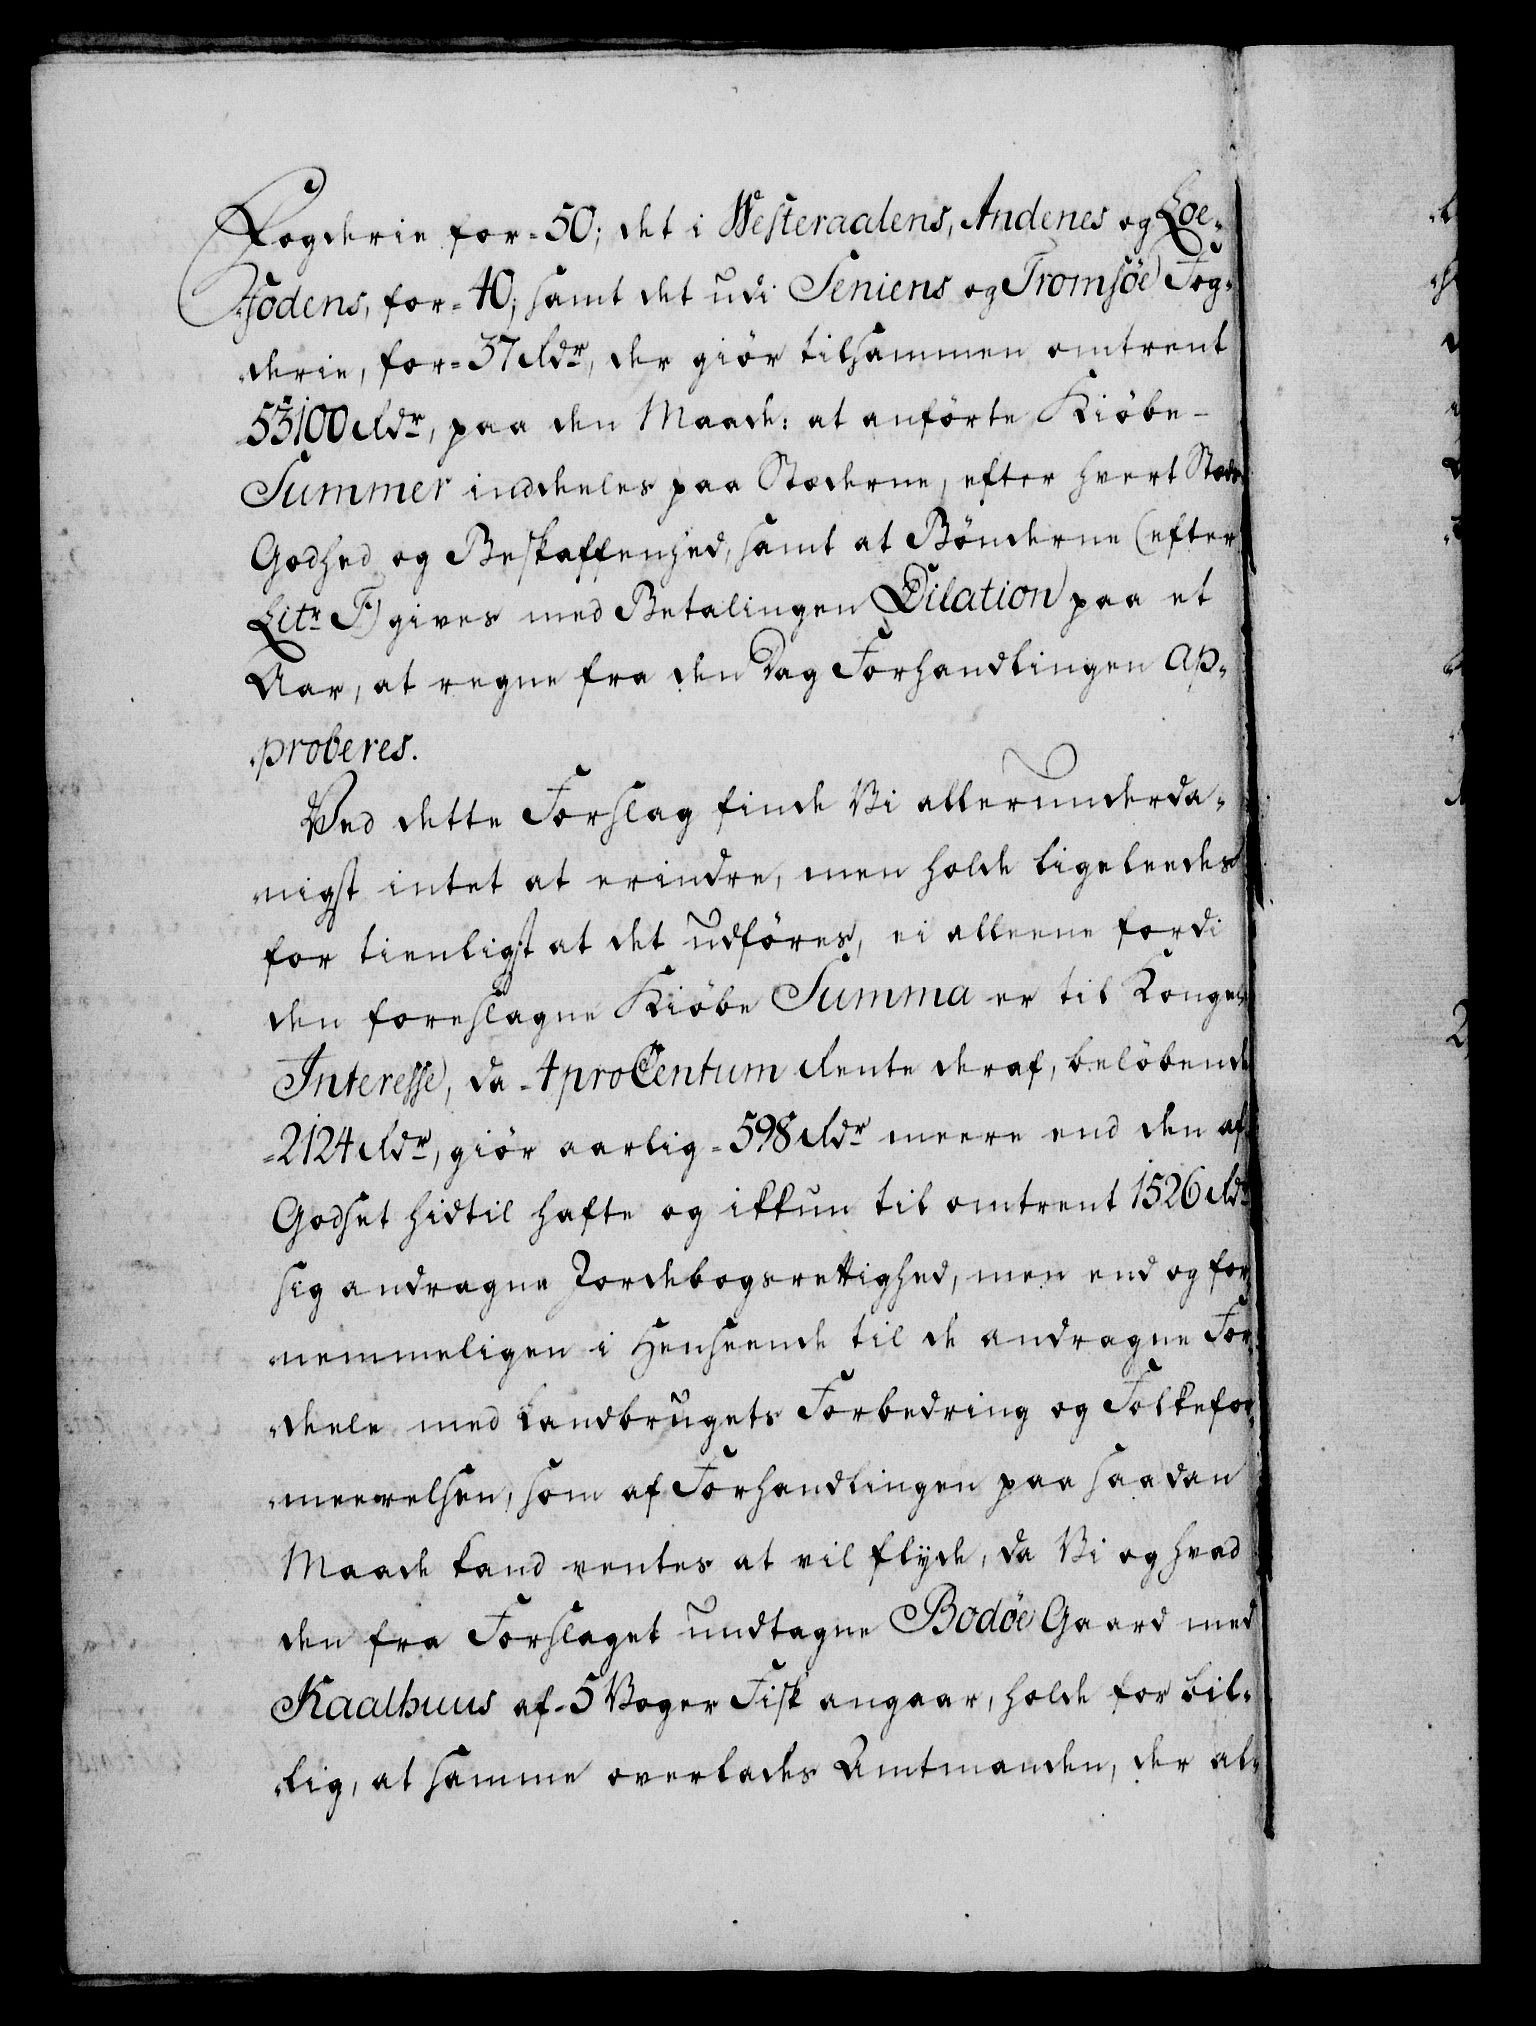 Fogderie for=50; det i Westeraalens, Andenes og Loe-
fodens, for=40; samt det udi Seniens og Tromsöe Fog-
derie, for=37 Rdr, der giör tilsammen omtrent
53100 Rdr, paa den Maade: at anförte Kiöbe-
Summer inddeeles paa Stæderne, efter hvert Stæds
Godhed og Beskaffenhed, samt at Bönderne (efter
Litr F) gives med Betalingen Dilation paa et
Aar, at regne fra den Dag Forhandlingen ap-
proberes.
Ved dette Forslag finde Vi allerunderda-
nigst intet at erindre, men holde ligeleedes
for tienligst at det udföres, ei alleene fordi
den foreslagne Kiöbe Summa er til Kongens
Interesse, da 4 pro Centum Rente deraf, belöbende
2124 Rdr, giör aarlig=598 Rdr meere end den af
Godset hidtil hafte og ikkun til omtrent 1526 Rdr
sig andragne Jordebogsrettighed, men end og for-
nemmeligen i Henseende til de andragne For-
dele med Landbrugets Forbedring og Folkefor-
meerelsen, som af Forhandlingen paa saadan
Maade kand ventes at vil flyde, da Vi og hvad
den fra Forslaget undtagne Bodöe Gaard med
Kaalhuus af 5 Voger Fisk angaar, holde for bil-
lig, at samme overlades Amtmanden, der al-